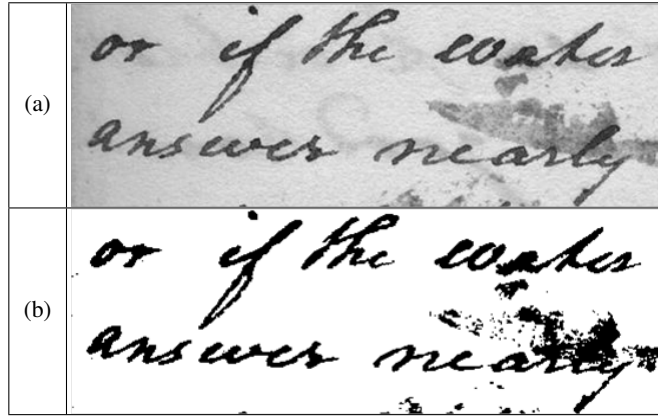 (a)
or if the water
answer nearly
(b)
or if the water
answer nearly